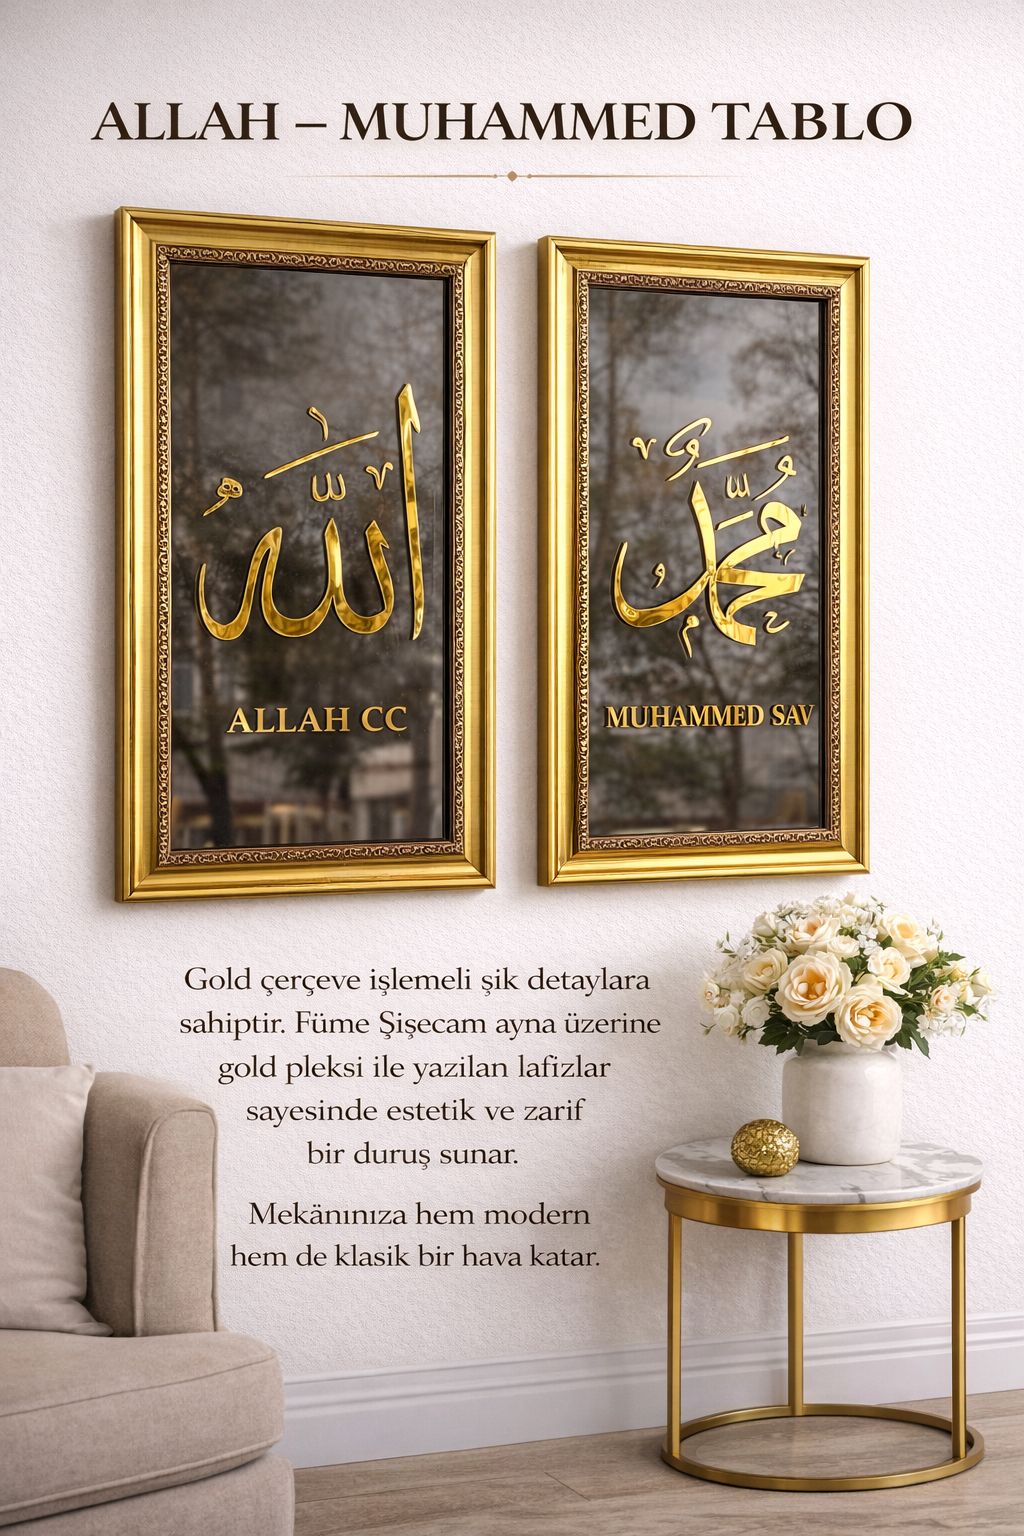 ALLAH – MUHAMMED TABLO
الله
محمد
ALLAH CC
MUHAMMED SAV
Gold çerçeve işlemeli şik detaylara
sahiptir. Füme Şişecam ayna üzerine
gold pleksi ile yazilan lafizlar
sayesinde estetik ve zarif
bir duruş sunar.
Mekäniniza hem modern
hem de klasik bir hava katar.